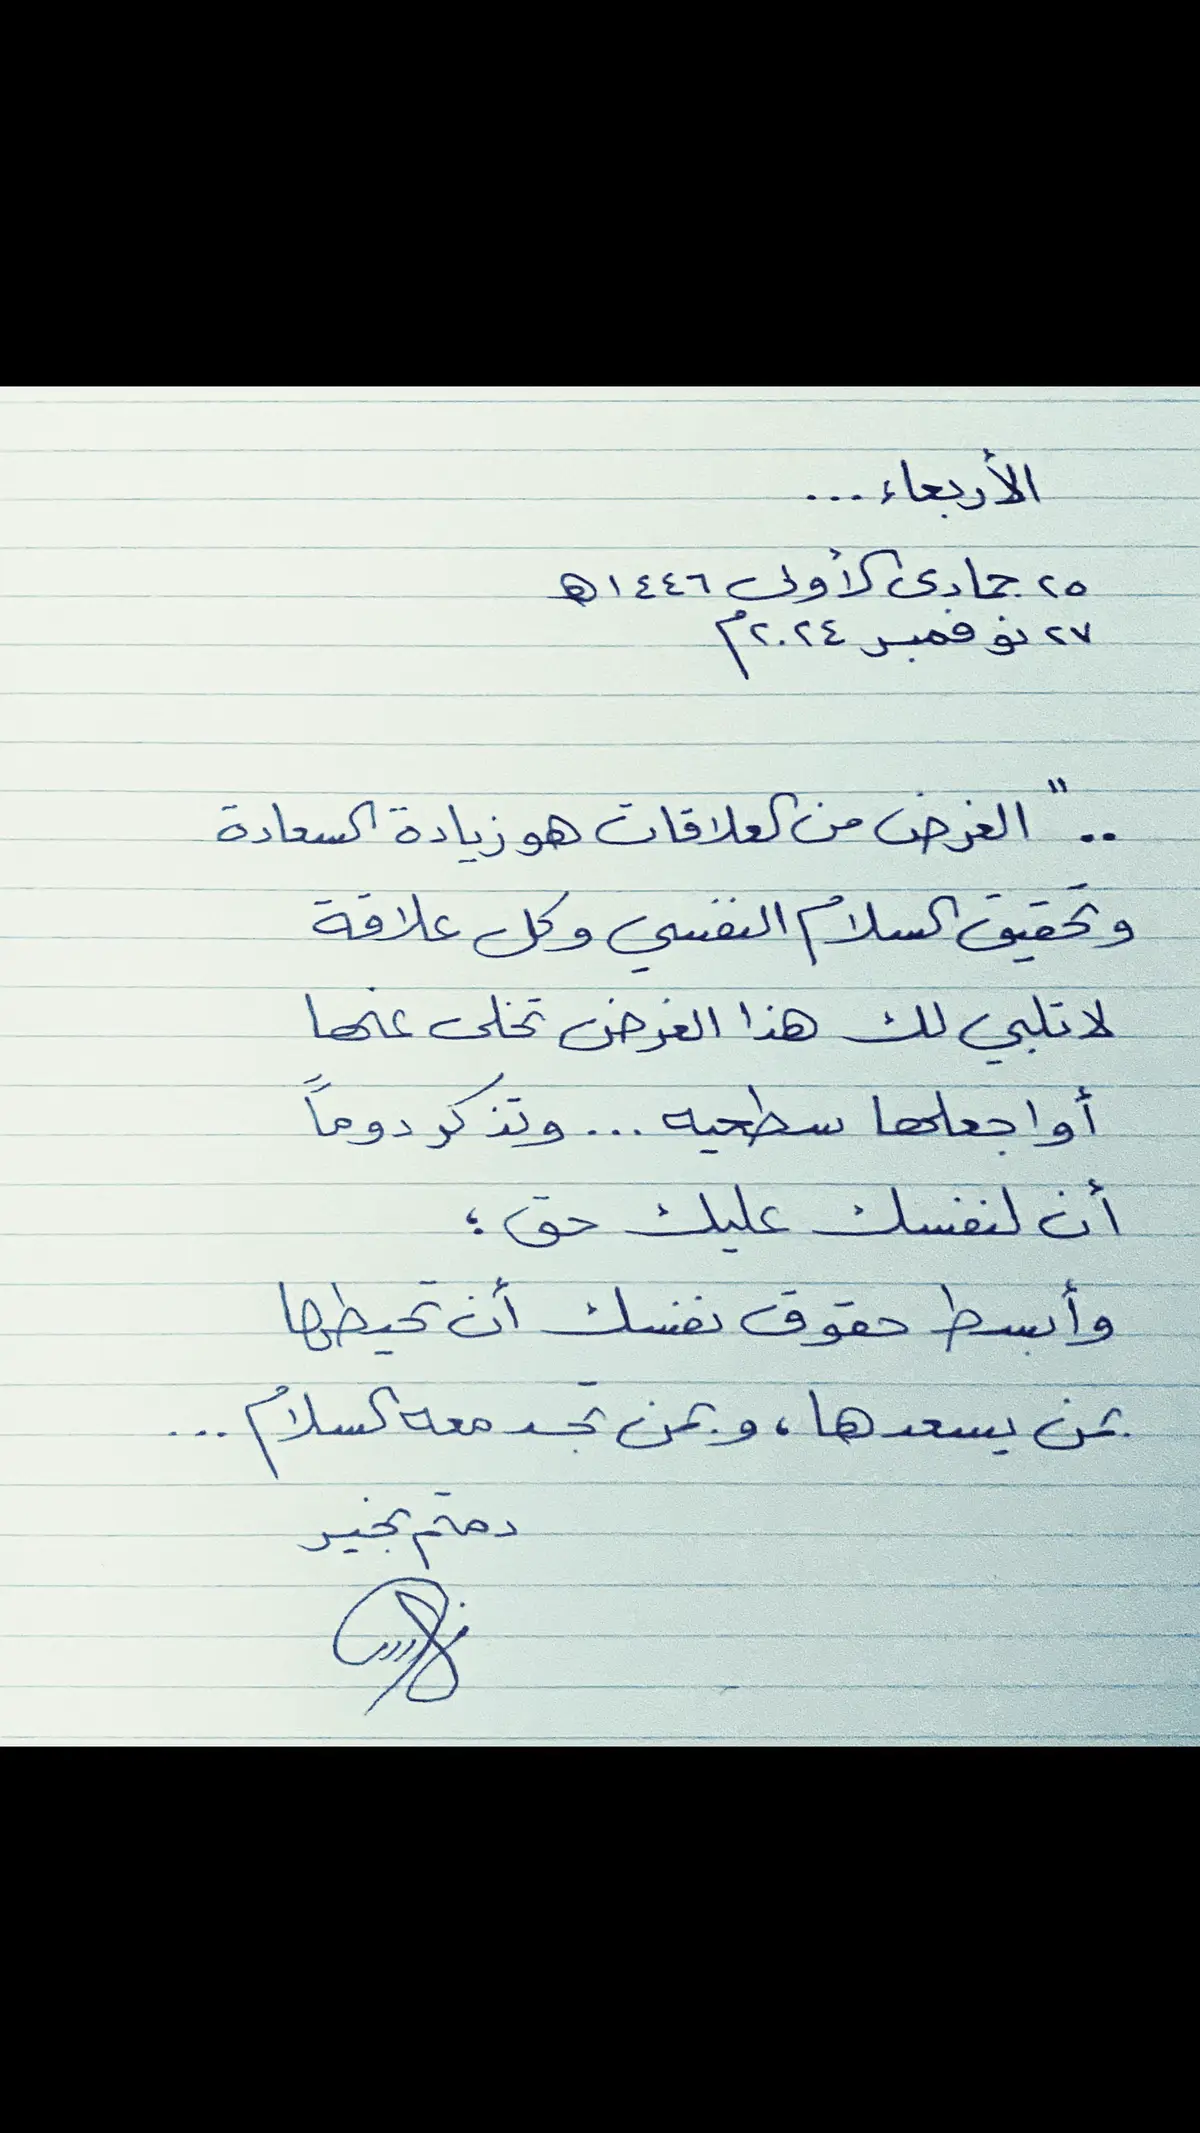 الأربعاء ...
٢٥ جمادى الأولى ١٤٤٦ه
٢٧ نوفمبر ٢٠٢٤م
.." الغرض من العلاقات هو زيادة السعادة
وتحقيق السلام النفسي وكل علاقة
لا تلبي لك هذا الغرض تخلى عنها
أو اجعلها سطحيه ... وتذكر دوماً
أن لنفسك عليك حق ؛
وأبسط حقوق نفسك أن تحيطها
بمن يسعدها ، وبمن تجد معه السلام ...
دمتم بخير